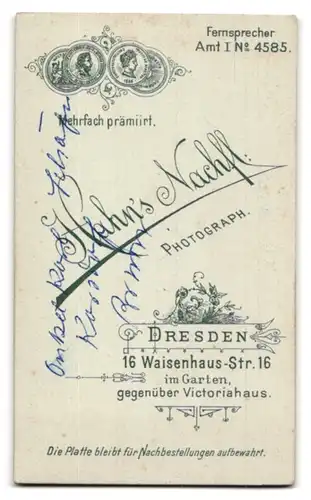 Fernsprecher
Amt I Nº 4585.
Mehrfach prämiirt.
Hahn's Nachfl.
PHOTOGRAPH.
DRESDEN
16 Waisenhaus-Str. 16
im Garten,
gegenüber Victoriahaus.
Die Platte bleibt für Nachbestellungen aufbewahrt.
Onkel